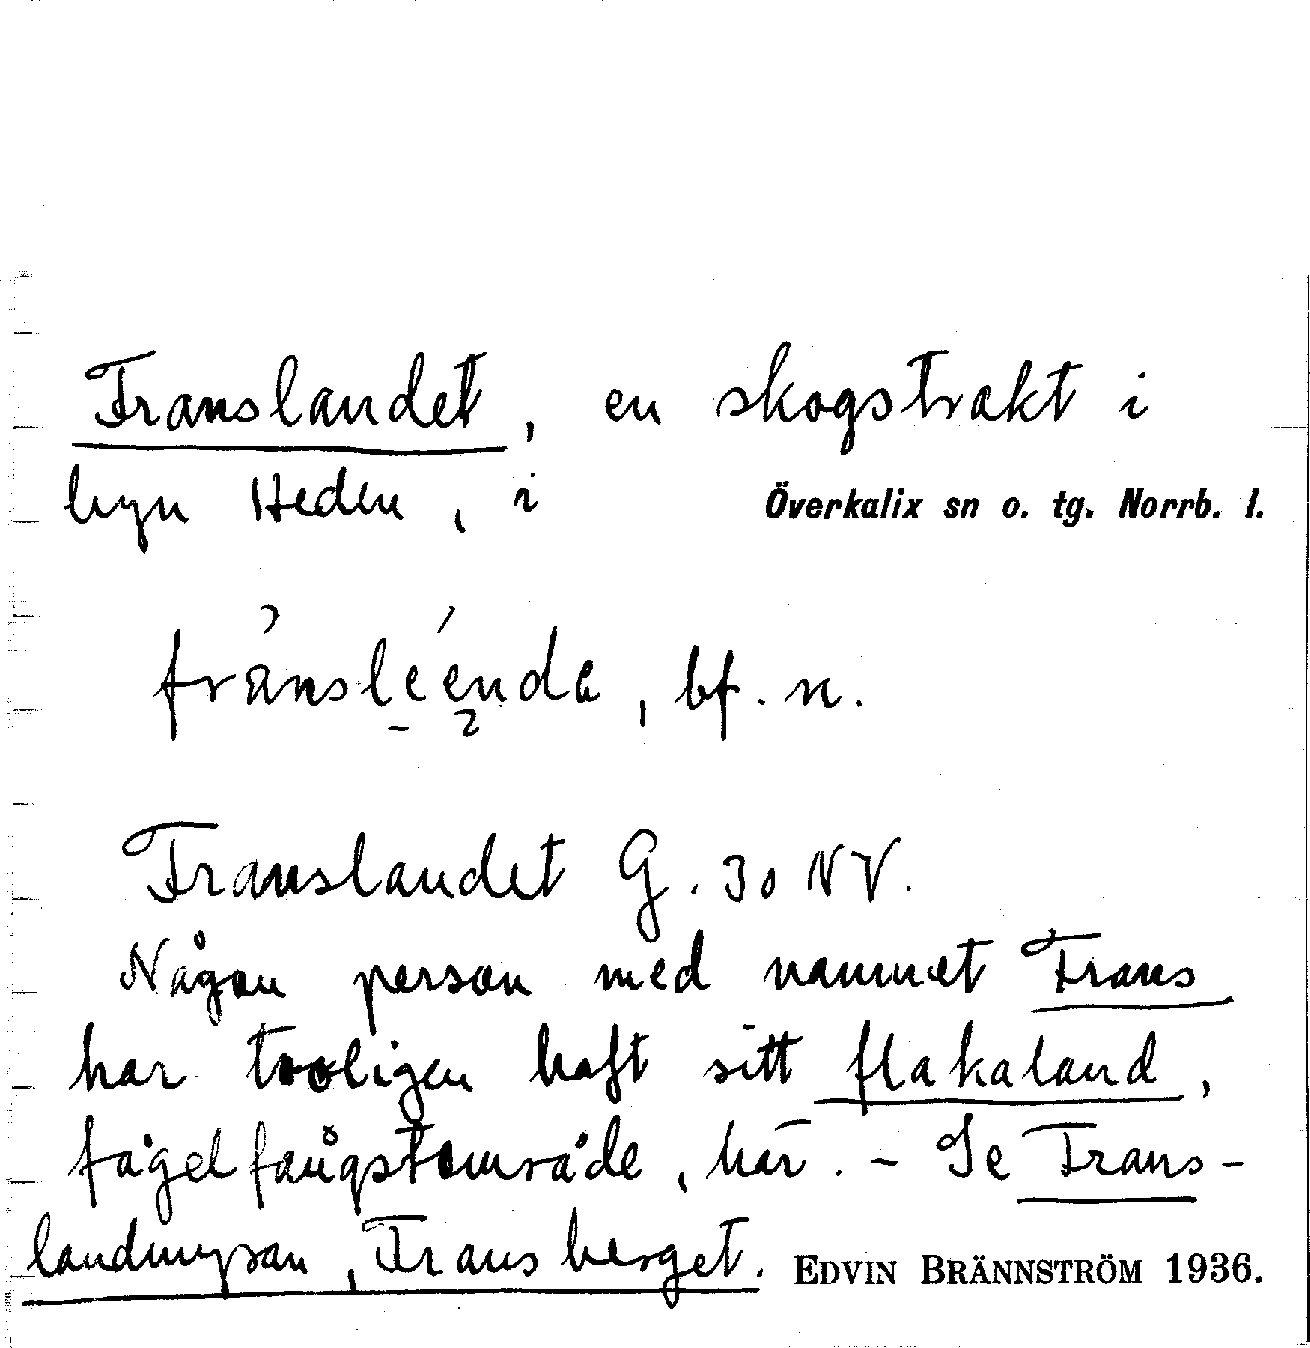 Franslandet, en skogstrakt i
byn Heden, i Överkalix sn o. tg. Norrb. l.
, bf. n.
Franslandet G. 30 NV.
Någon person med namnet Frans
har troligen haft sitt flakaland,
fågelfångstområde, här. - Se Frans-
landmyran, Fransberget. EDVIN BRÄNNSTRÖM 1936.